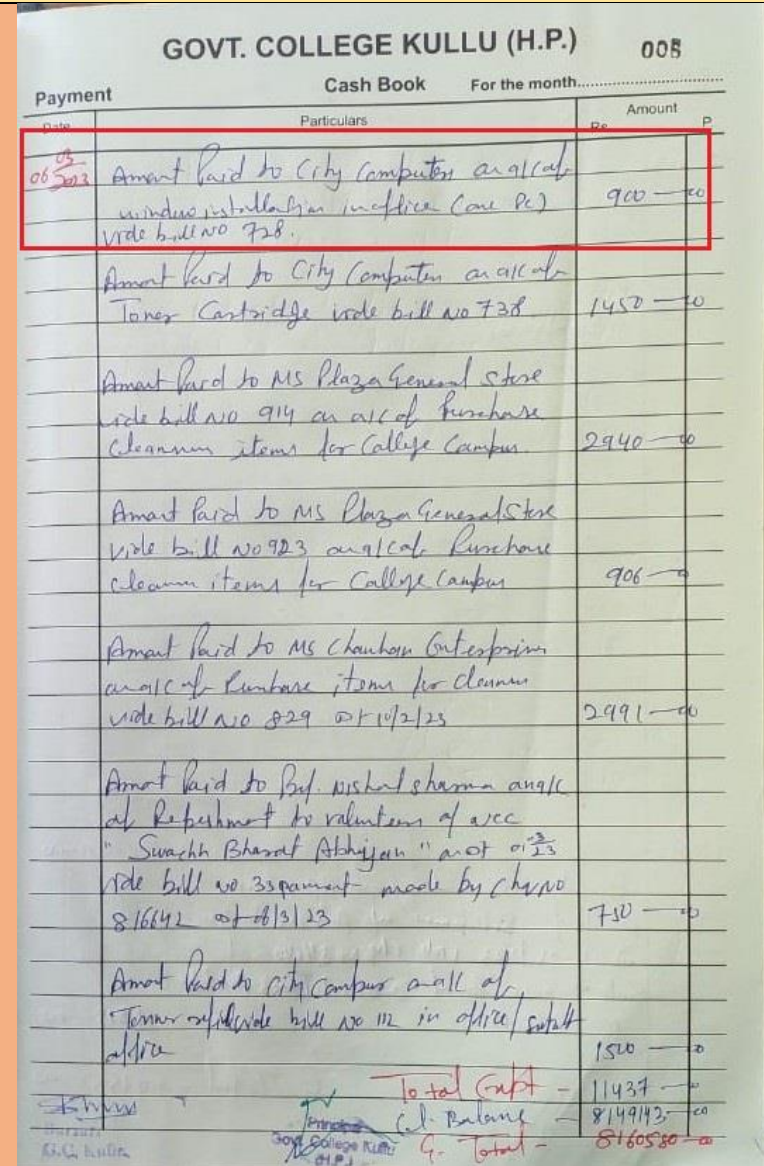 GOVT. COLLEGE KULLU (H.P.) 005
Payment Cash Book For the month
Date Particulars Amount
Rs. P.
06 03 2023 Amount Paid to City Computer on a/c of
window installation in office (one Pc) 900 — 00
vide bill No 728.
Amount Paid to City Computer on a/c of
Toner Cartridge vide bill No 738 1450 — 00
Amount Paid to MS Plaza General Store
vide bill No 914 on a/c of Purchase
items for College Campus. 2940 — 00
Amount Paid to MS Plaza General Store
vide bill No 923 on a/c of Purchase
items for College Campus 906 — 0
Amount Paid to MS Chauhan Enterprises
on a/c of Purchase items for
vide bill No 829 dt 10/2/23 2991 — 00
Amount Paid to Prof. Nishal Sharma on a/c
of Refreshment to of NCC
" Swachh Bharat Abhiyan "
vide bill no 33 made by
816642 dt 8/3/23 750 — 00
Amount Paid to City on a/c of
vide bill No 112 in office/
office 1500 — 0
Total Expt - 11437 — 00
Cl. Balance - 8149143 — 00
G. Total - 8160580 — 00
Principal
Govt. College Kullu
(H.P.)
Bursar
G.C. Kullu